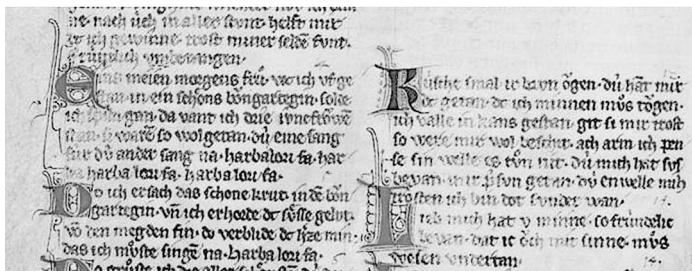 ne nach üch in aller stunt. helft mir
dt ich gewinne. trost miner selden funt.
Eins meien morgens frü. wc ich vf ge
stan. in ein schons bongartegin. solte
ich spiln gan. da vant ich drie iuncfrowe
stan. si ware so wol getan. dü eine sang
für dü ander sang na. harbalori fa. har
ra harba lori fa. harba lori fa.
Do ich ersach das schone krut. in de bon
gartegin. vn ich erhorde dc süsse gelut.
vo den megden fin. do verblide dc hze min.
das ich müste singe na. harba lori fa.
Do grüste ich die aller
Rüsche smal ir brun ögen. dü hant mir
dc getan. dc ich minnen müs tögen.
ich valle in bans gestan. git si mir trost
so were mir wol beschert. ach arin ich
se sin welle es tün nit. dü mich hat sus
bevan. mir p sun getan. dü en welle mich
trosten ich bin dot sunder wan.
Lieb mich hat v minne. so fründelic
bevan. dat ic och mit sinne. müs
wesen undertan.